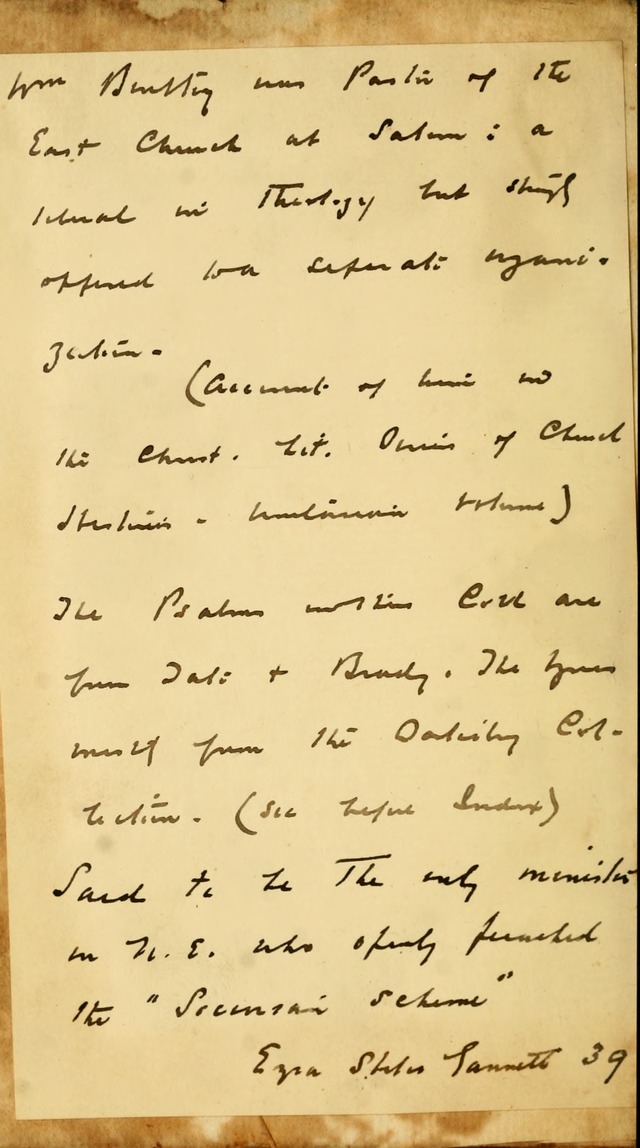 Wm Bentley was Pastor of the
East Church at Salem: a
liberal in Theology but strongly
opposed to a seperate organi-
zation -
(Account of him in
the Christ. Lit. Series of Church
Histories - Unitarian Volume)
The Psalms in this Coll are
from Tate & Brady. The hymns
mostly from the Collec-
lection. (See before Index)
Said to be The only minister
in N. E. who openly preached
the "Socinian Scheme"
Ezra Stiles Gannett 39